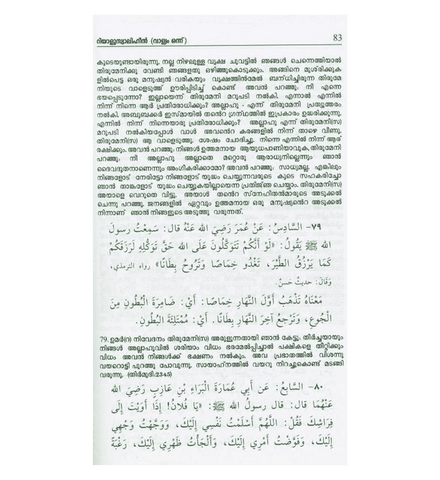 റിയാളുസ്വാലിഹീൻ (വാള്യം ഒന്ന്) 83
കൂടെയുണ്ടായിരുന്നു. നല്ല നിഴലുള്ള വൃക്ഷ ചുവട്ടിൽ ഞങ്ങൾ ചെന്നെത്തിയാൽ
തിരുമേനിക്കു വേണ്ടി ഞങ്ങളതു ഒഴിഞ്ഞുകൊടുക്കും. അങ്ങിനെ മുശ്രിക്കുക
ളിൽപെട്ട ഒരു മനുഷ്യൻ വരികയും വൃക്ഷത്തിൻമേൽ ബന്ധിച്ചിരുന്ന തിരുമേ
നിയുടെ വാളെടുത്ത് ഊരിപ്പിടിച്ച് കൊണ്ട് അവൻ പറഞ്ഞു: നീ എന്നെ
ഭയപ്പെടുന്നോ? ഇല്ലായെന്ന് തിരുമേനി മറുപടി നൽകി. എന്നാൽ എന്നിൽ
നിന്ന് നിന്നെ ആർ പ്രതിരോധിക്കും? അല്ലാഹു - എന്ന് തിരുമേനി പ്രത്യുത്തരം
നൽകി. അബൂബക്കർ ഇസ്മായിൽ തന്റെ ഗ്രന്ഥത്തിൽ ഇപ്രകാരം ഉദ്ധരിക്കുന്നു.
എന്നിൽ നിന്ന് നിന്നെയാരു പ്രതിരോധിക്കും? അല്ലാഹു എന്ന് തിരുമേനി(സ)
മറുപടി നൽകിയപ്പോൾ വാൾ അവന്റെ കരങ്ങളിൽ നിന്ന് താഴെ വീണു.
തിരുമേനി(സ) ആ വാളെടുത്തു. ശേഷം ചോദിച്ചു. നിന്നെ എന്നിൽ നിന്ന് ആര്
രക്ഷിക്കും. അവൻ പറഞ്ഞു: നിങ്ങൾ ഉത്തമനായ ആയുധപാണിയാവുക. തിരുമേനി
പറഞ്ഞു: നീ അല്ലാഹു അല്ലാതെ മറ്റൊരു ആരാധ്യനില്ലെന്നും ഞാൻ
ദൈവദൂതനാണെന്നും അംഗീകരിക്കാമോ? അവൻ പറഞ്ഞു: സാധ്യമല്ല. എങ്കിലും
നിങ്ങളോട് നേരിട്ടും നിങ്ങളോട് യുദ്ധം ചെയ്യുന്നവരുടെ കൂടെ സഹകരിച്ചോ
ഞാൻ താങ്കളോട് യുദ്ധം ചെയ്യുകയില്ലായെന്ന പ്രതിജ്ഞ ചെയ്യാം. തിരുമേനി(സ)
അയാളെ വെറുതെ വിട്ടു. അയാൾ തന്റെ സ്നേഹിതൻമാരുടെ അടുക്കൽ
ചെന്നു പറഞ്ഞു. ജനങ്ങളിൽ ഏറ്റവും ഉത്തമനായ ഒരു മനുഷ്യന്റെ അടുക്കൽ
നിന്നാണ് ഞാൻ നിങ്ങളുടെ അടുത്തു വരുന്നത്.
٧٩- السَّادِسُ: عَنْ عُمَرَ رَضِيَ الله عَنْهُ قال: سَمِعْتُ رسولَ
الله ﷺ يَقُولُ: «لَوْ أَنَّكُمْ تَتَوَكَّلُونَ عَلَى الله حَقَّ تَوَكُّلِهِ لَرَزَقَكُمْ
كَمَا يَرْزُقُ الطَّيْرَ، تَغْدُو خِمَاصًا وَتَرُوحُ بِطَانًا» رواه الترمذي،
وَقَالَ: حديثٌ حَسَنٌ.
مَعْنَاهُ تَذْهَبُ أَوَّلَ النَّهَارِ خِمَاصًا: أَيْ: ضَامِرَةَ الْبُطُونِ مِنَ
الْجُوعِ، وَتَرْجِعُ آخِرَ النَّهَارِ بِطَانًا. أَيْ: مُمْتَلِئَةَ الْبُطُونِ.
79. ഉമർ(റ) നിവേദനം: തിരുമേനി(സ) അരുളുന്നതായി ഞാൻ കേട്ടു. തീർച്ചയായും
നിങ്ങൾ അല്ലാഹുവിൽ ശരിയാം വിധം ഭരമേൽപ്പിച്ചാൽ പക്ഷികളെ തീറ്റിക്കും
വിധം അവൻ നിങ്ങൾക്ക് ഭക്ഷണം നൽകും. അവ പ്രഭാതത്തിൽ വിശന്നു
വയറൊട്ടി പുറത്തു പോവുന്നു. സായാഹ്നത്തിൽ വയറു നിറച്ചുകൊണ്ട് മടങ്ങി
വരുന്നു. (തിർമുദി:2345)
٨٠- السَّابِعُ: عَن أَبِي عُمَارَةَ الْبَرَاءِ بْنِ عَازِبٍ رَضِيَ الله
عَنْهُمَا قال: قال رسولُ الله ﷺ: «يَا فُلَانُ! إِذَا أَوَيْتَ إِلَى
فِرَاشِكَ فَقُلْ: اللَّهُمَّ أَسْلَمْتُ نَفْسِي إِلَيْكَ، وَوَجَّهْتُ وَجْهِي
إِلَيْكَ، وَفَوَّضْتُ أَمْرِي إِلَيْكَ، وَأَلْجَأْتُ ظَهْرِي إِلَيْكَ، رَغْبَةً